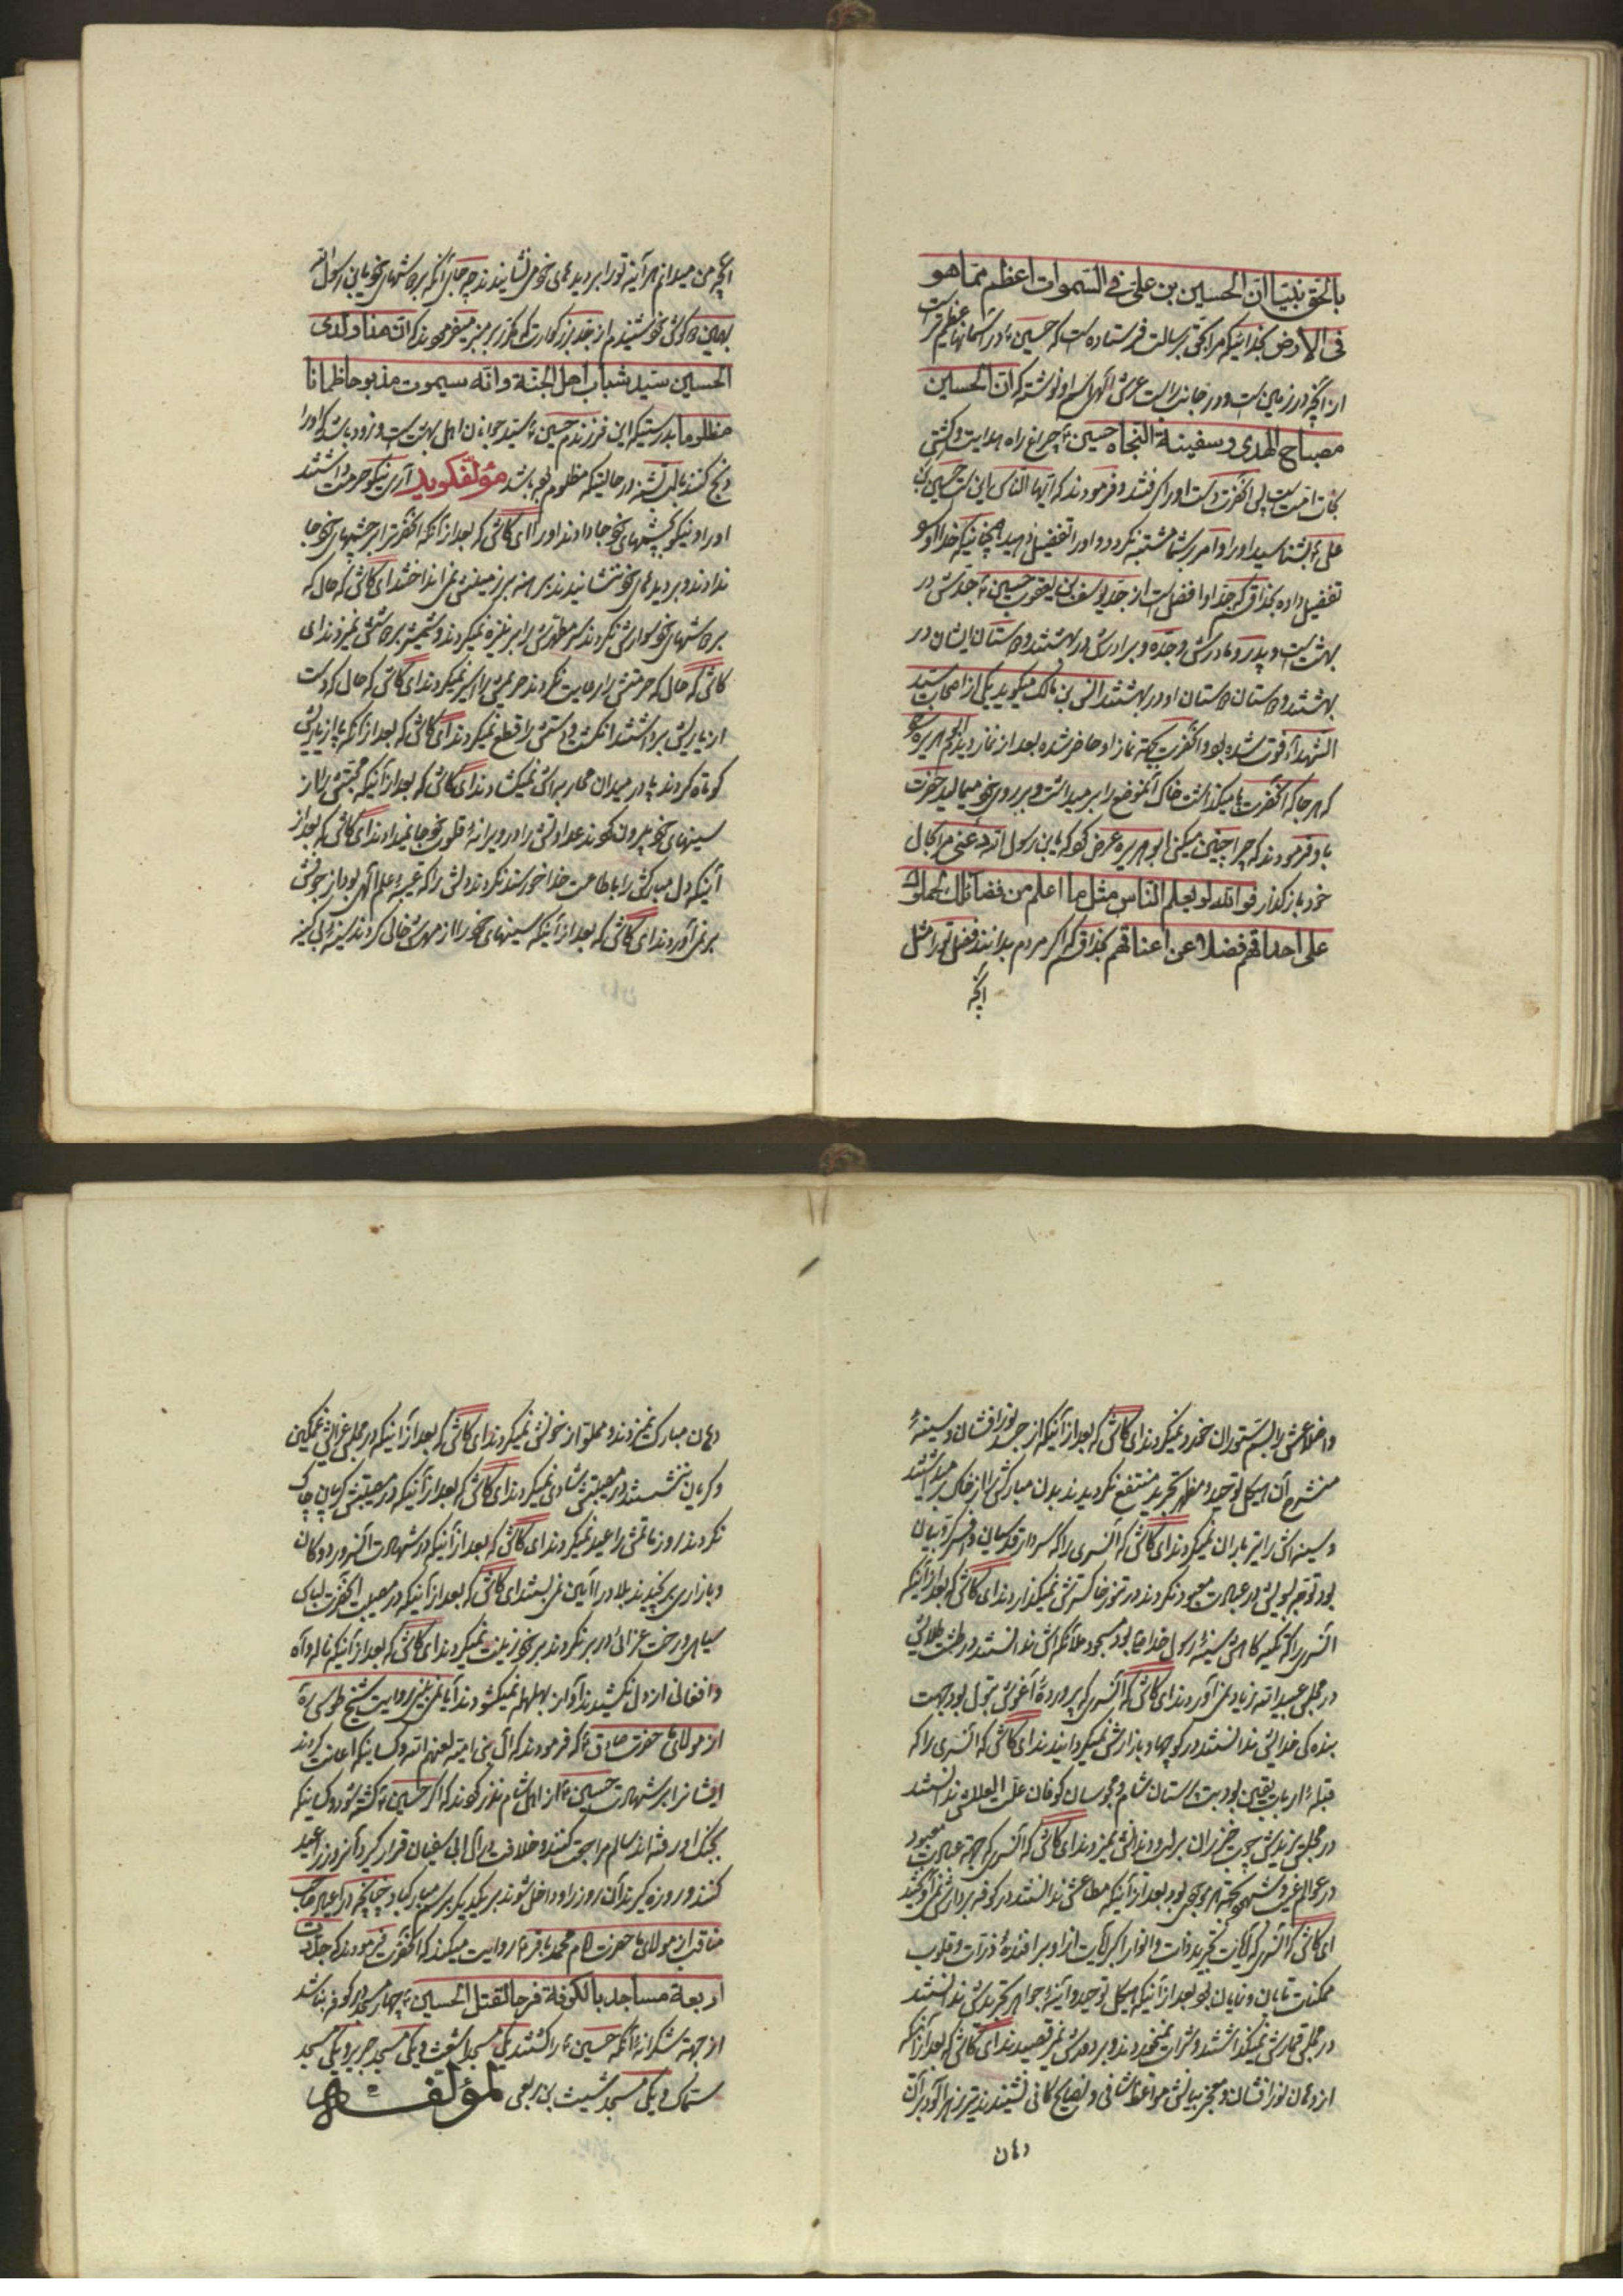 بالحق نبیّا انّ الحسین بن علیّ فی السّموات اعظم ممّا هو
فی الارض بخدائیکه مرا بحق برسالت فرستاده است که حسین در آسمانها عظیم تر است
از آنچه در زمین است و در جانب راست عرش الهی اسم او نوشته که انّ الحسین
مصباح الهدی و سفینة النجاه حسین چراغ راه هدایت و کشتی
نجات امت است پس آنحضرت دست او را گرفتند و فرمودند که ایها الناس این است حسین بن
علی بشناسید او را و امر بر شما مشتبه نگردد و او را تفضیل دهید همچنانیکه خدا او را
تفضیل داده بخدا قسم که جد او افضل است از جد یوسف بن یعقوب حسین جدش در
بهشت است و پدر و مادرش و جده و برادرش در بهشتند و دوستان ایشان در
بهشتند و دوستان دوستان او در بهشتند انس بن مالک میگوید یکی از اصحاب سید
الشهدا فوت شده بود و آنحضرت بجهة نماز او حاضر شده بعد از نماز دیدم ابو هریره را
که هر جا که آنحضرت پا میگذاشت خاک آنموضع را بر میداشت و بر روی خود میمالید حضرت
باو فرمودند که چرا چنین میکنی ابو هریره عرض کرد که یابن رسول الله دعنی مرا بحال
خود باز گذار فوالله لو یعلم النّاس مثل ما اعلم من فضائلک لحملوک
علی احداقهم فضلا عن اعناقهم بخدا قسم که اگر مردم بدانند فضل تو را مثل
آنچه
آنچه من میدانم هر آینه تو را بر دیدهای خود می نشانیدند چه جای آنکه بر دوشهای خود یابن رسول الله
بهمین دو گوش خود شنیدم از جد بزرگوارت که مکرر بر منبر میفرمودند که انّ هذا ولدی
الحسین سیّد شباب اهل الجنّة و انّه سیموت مذبوحا ظمآنا
مظلوما بدرستیکه این فرزندم حسین سید جوانان اهل بهشت است و زود باشد که او را
ذبح کنند با لب تشنه در حالتیکه مظلوم بوده باشد مؤلّف گوید آری نیکو حرمت داشتند
او را و نیکو بچشمهای خود جا دادند او را ای کاش که بعد از آنکه آنحضرت را بر چشمهای خود جا
ندادند و بر دیدهای خود ننشانیدند برهنه بر زمینش نمی انداختند ای کاش که حال که
بر دوشهای خود سوارش نکردند سر مطهرش را بر نیزه نمیکردند و شمشیر بر دوشش نمیزدند ای
کاش که حال که حرمتش را رعایت نکردند حریمش را اسیر نمیکردند ای کاش که حال که دست
از یاریش برداشتند انگشت و دستش را قطع نمیکردند ای کاش که بعد از آنکه پا از یاریش
کوتاه کردند پا در میدان محاربه اش نمیگشادند ای کاش که بعد از آنکه محبتش را از
سینهای خود بیرون کردند عداوتش را در ویرانه قلوب خود جا نمیدادند ای کاش که بعد از
آنیکه دل مبارکش را باطاعت خدا خورسند نکردند دلش را که عیبه علم الهی بود از جوفش
بر نمی آوردند ای کاش که بعد از آنیکه سینهای خود را از مهرش خالی کردند سینه بی کینه
و اضلاعش را بسم ستوران خورد نمیکردند ای کاش که بعد از آنیکه از جسد نور افشان و سینه
منشرح آن هیکل توحید و مظهر تجرید منتفع نگردیدند بدن مبارکش را از خاک بر میداشتند
و سینه اش را تیر باران نمیکردند ای کاش که آنسری را که سردار قدسیان و افسر کروبیان
بود توجه بسویش در عبادت معبود نکردند در تنور خاکسترش نمیگذاردند ای کاش که بعد از آنیکه
آنسری را که تکیه گاهش سینه رسول خدا بود مسجود ملائکه اش ندانستند در طشت طلائی
در مجلس عبید الله زیاد نمی آوردند ای کاش که آنسری که پرورده آغوش بتول بود بجهت
بنده گی خدائیش ندانستند در کوچها و بازارش نمیگردانیدند ای کاش که آنسری را که
قبله ارباب یقین بود بت پرستان شام و مجوسان کوفان علت العللش ندانستند
در مجلس یزیدش چوب خیزران بر لب و دندانش نمیزدند ای کاش که آنسری که جهة عبادت معبود
در عوالم غیب و شهود بجهة هر موجودی بود بعد از آنیکه مطاعش ندانستند در کوفه بر دارش نمی آویختند
ای کاش که آنسری که آیات تجرید ذات و انوار اکبریات از او بر افئده ذرات و قلوب
ممکنات تابان و نمایان بود بعد از آنیکه هیکل توحید و آئینه جواهر تجریدش ندانستند
در مجلس قمارش نمیگذاشتند و شراب نمیخوردند و بر دورش نمی رقصیدند ای کاش که بعد از آنیکه
از دهان نور افشان و معجز بیانش مواعظ شافی و نصایح کافی نشنیدند تیر زهر آلود بر آن
دهان
دهان مبارک نمیزدند و مملو از خونش نمیکردند ای کاش که بعد از آنیکه در مجلس عزایش غمگین
و گریان ننشستند در مصیبتش شادی نمیکردند ای کاش که بعد از آنیکه در مصیبتش گریبان چاک
نکردند روز ماتمش را عید نمیکردند ای کاش که بعد از آنیکه در شهادت آنسرور دوکان
و بازاری بر نچیدند بلاد را آیین نمی بستند ای کاش که بعد از آنیکه در مصیبت آنحضرت لباس
سیاهی و رخت عزائی در بر نکردند بر خود زینت نمیکردند ای کاش که بعد از آنیکه ناله و آه
و افغانی از دل نکشیدند آواز بهلهله نمیگشودند آیا نمی بینی روایت شیخ طوسی ره
از مولای ما حضرت صادق که فرمودند که آل بنی امیه لعنهم الله و کسانیکه اعانت کردند
ایشانرا بر شهادت حسین از اهل شام نذر کردند که اگر حسین کشته شود و کسانیکه
بجنگ او رفته اند سالم مراجعت کنند و خلافت در آل ابی سفیان قرار گیرد آنروز را عید
کنند و روزه گیرند آن روز را و داخل شوند بر یکدیگر برسم مبارکباد چنانچه در اعیاد صاحب
مناقب از مولای ما حضرت امام محمد باقر روایت میکند که آنحضرت فرمودند که جدّدت
اربعة مساجد بالکوفة فرحا لقتل الحسین چهار مسجد در کوفه بنا شد
از جهة شکرانه آنکه حسین را کشتند یکی مسجد اشعث و یکی مسجد جریر و یکی مسجد
سماک و یکی مسجد شبث بن ربعی لمؤلّفه